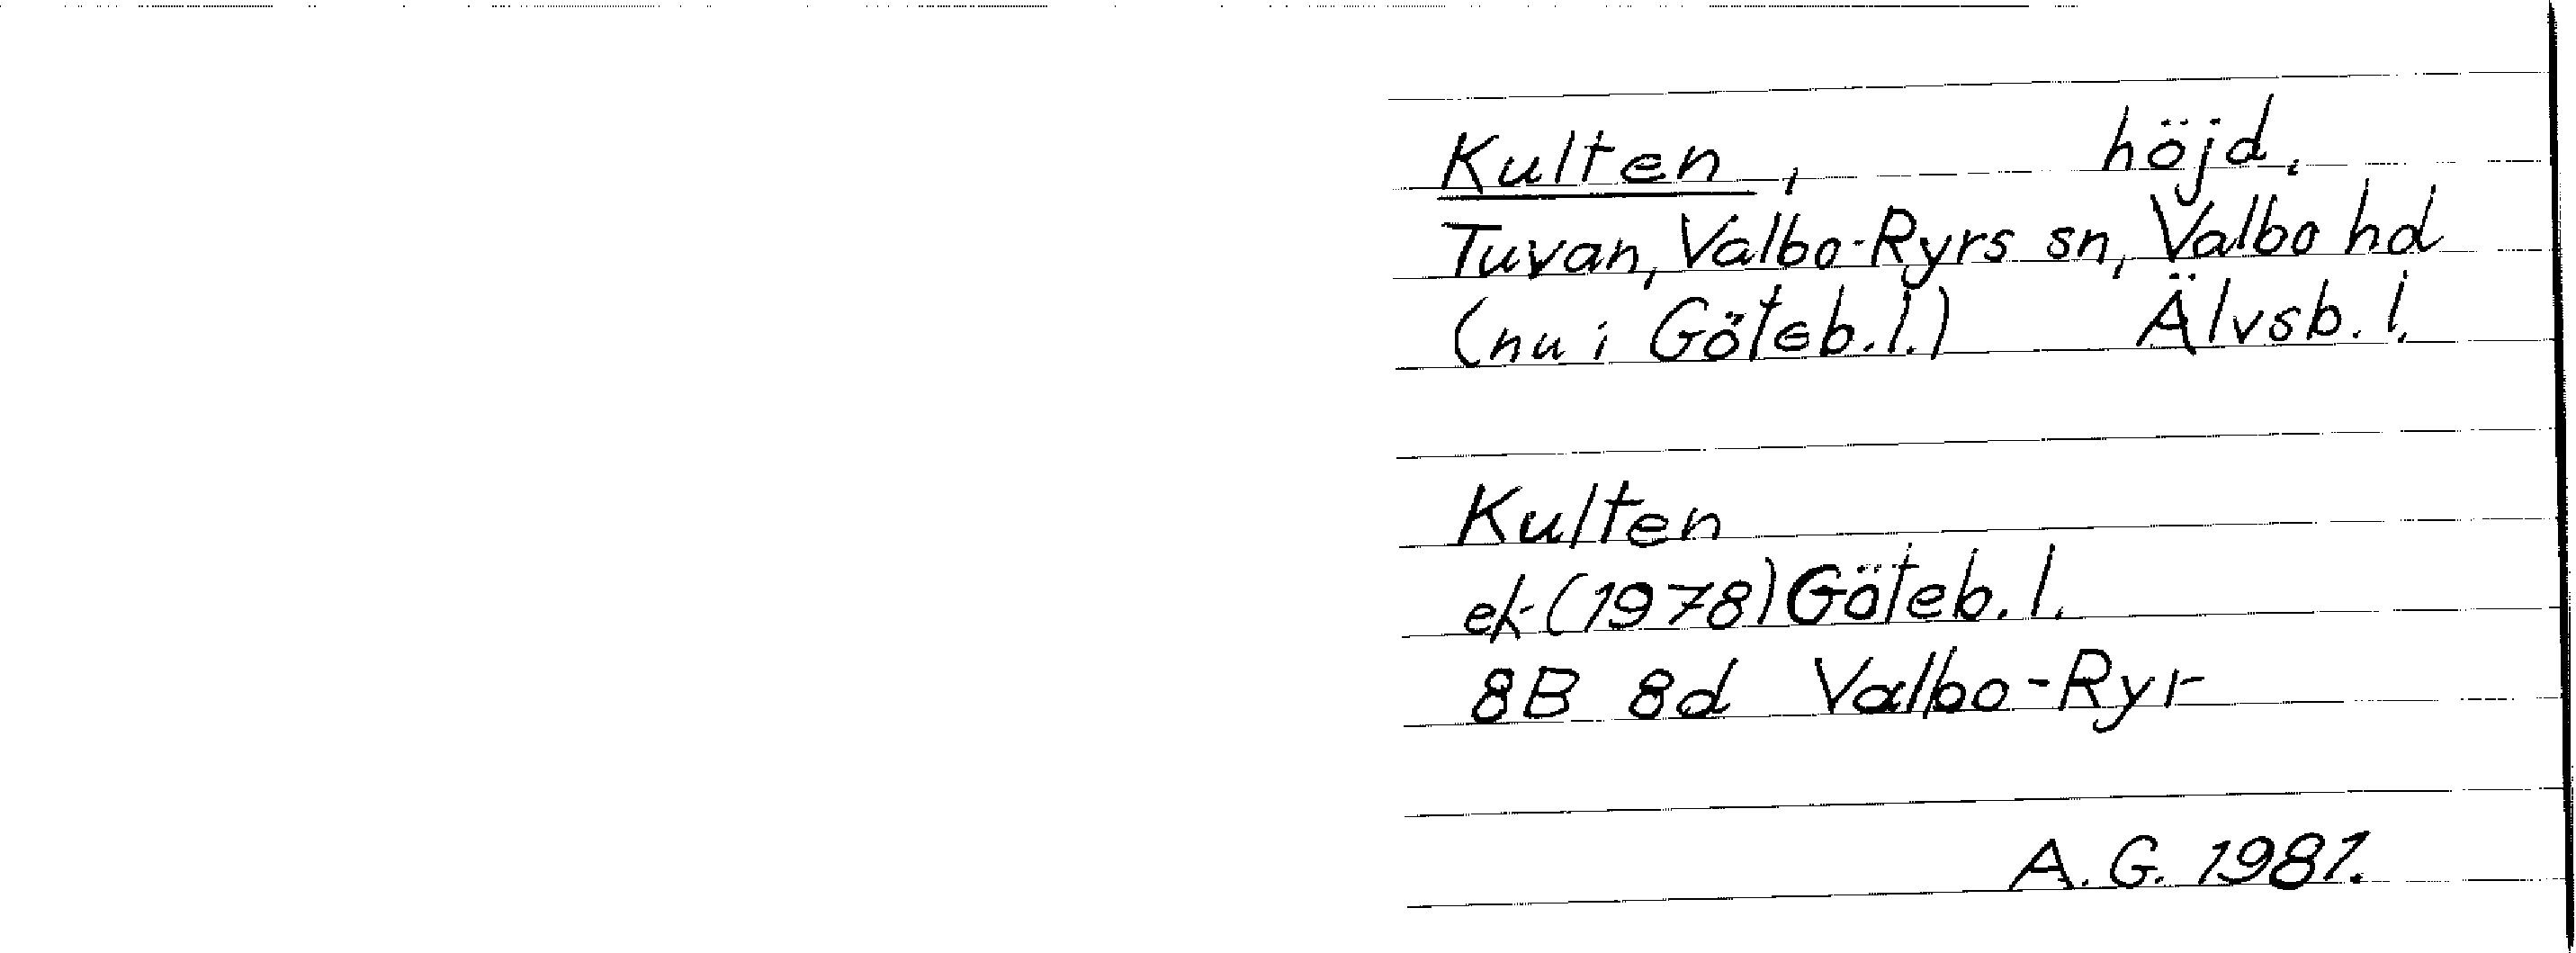 Kulten, höjd.
Tuvan, Valbo-Ryrs sn, Valbo hd
(nu i Göteb.l.) Älvsb. l.
Kulten
ek (1978) Göteb. l.
8B 8d Valbo-Ryr
A. G. 1981.